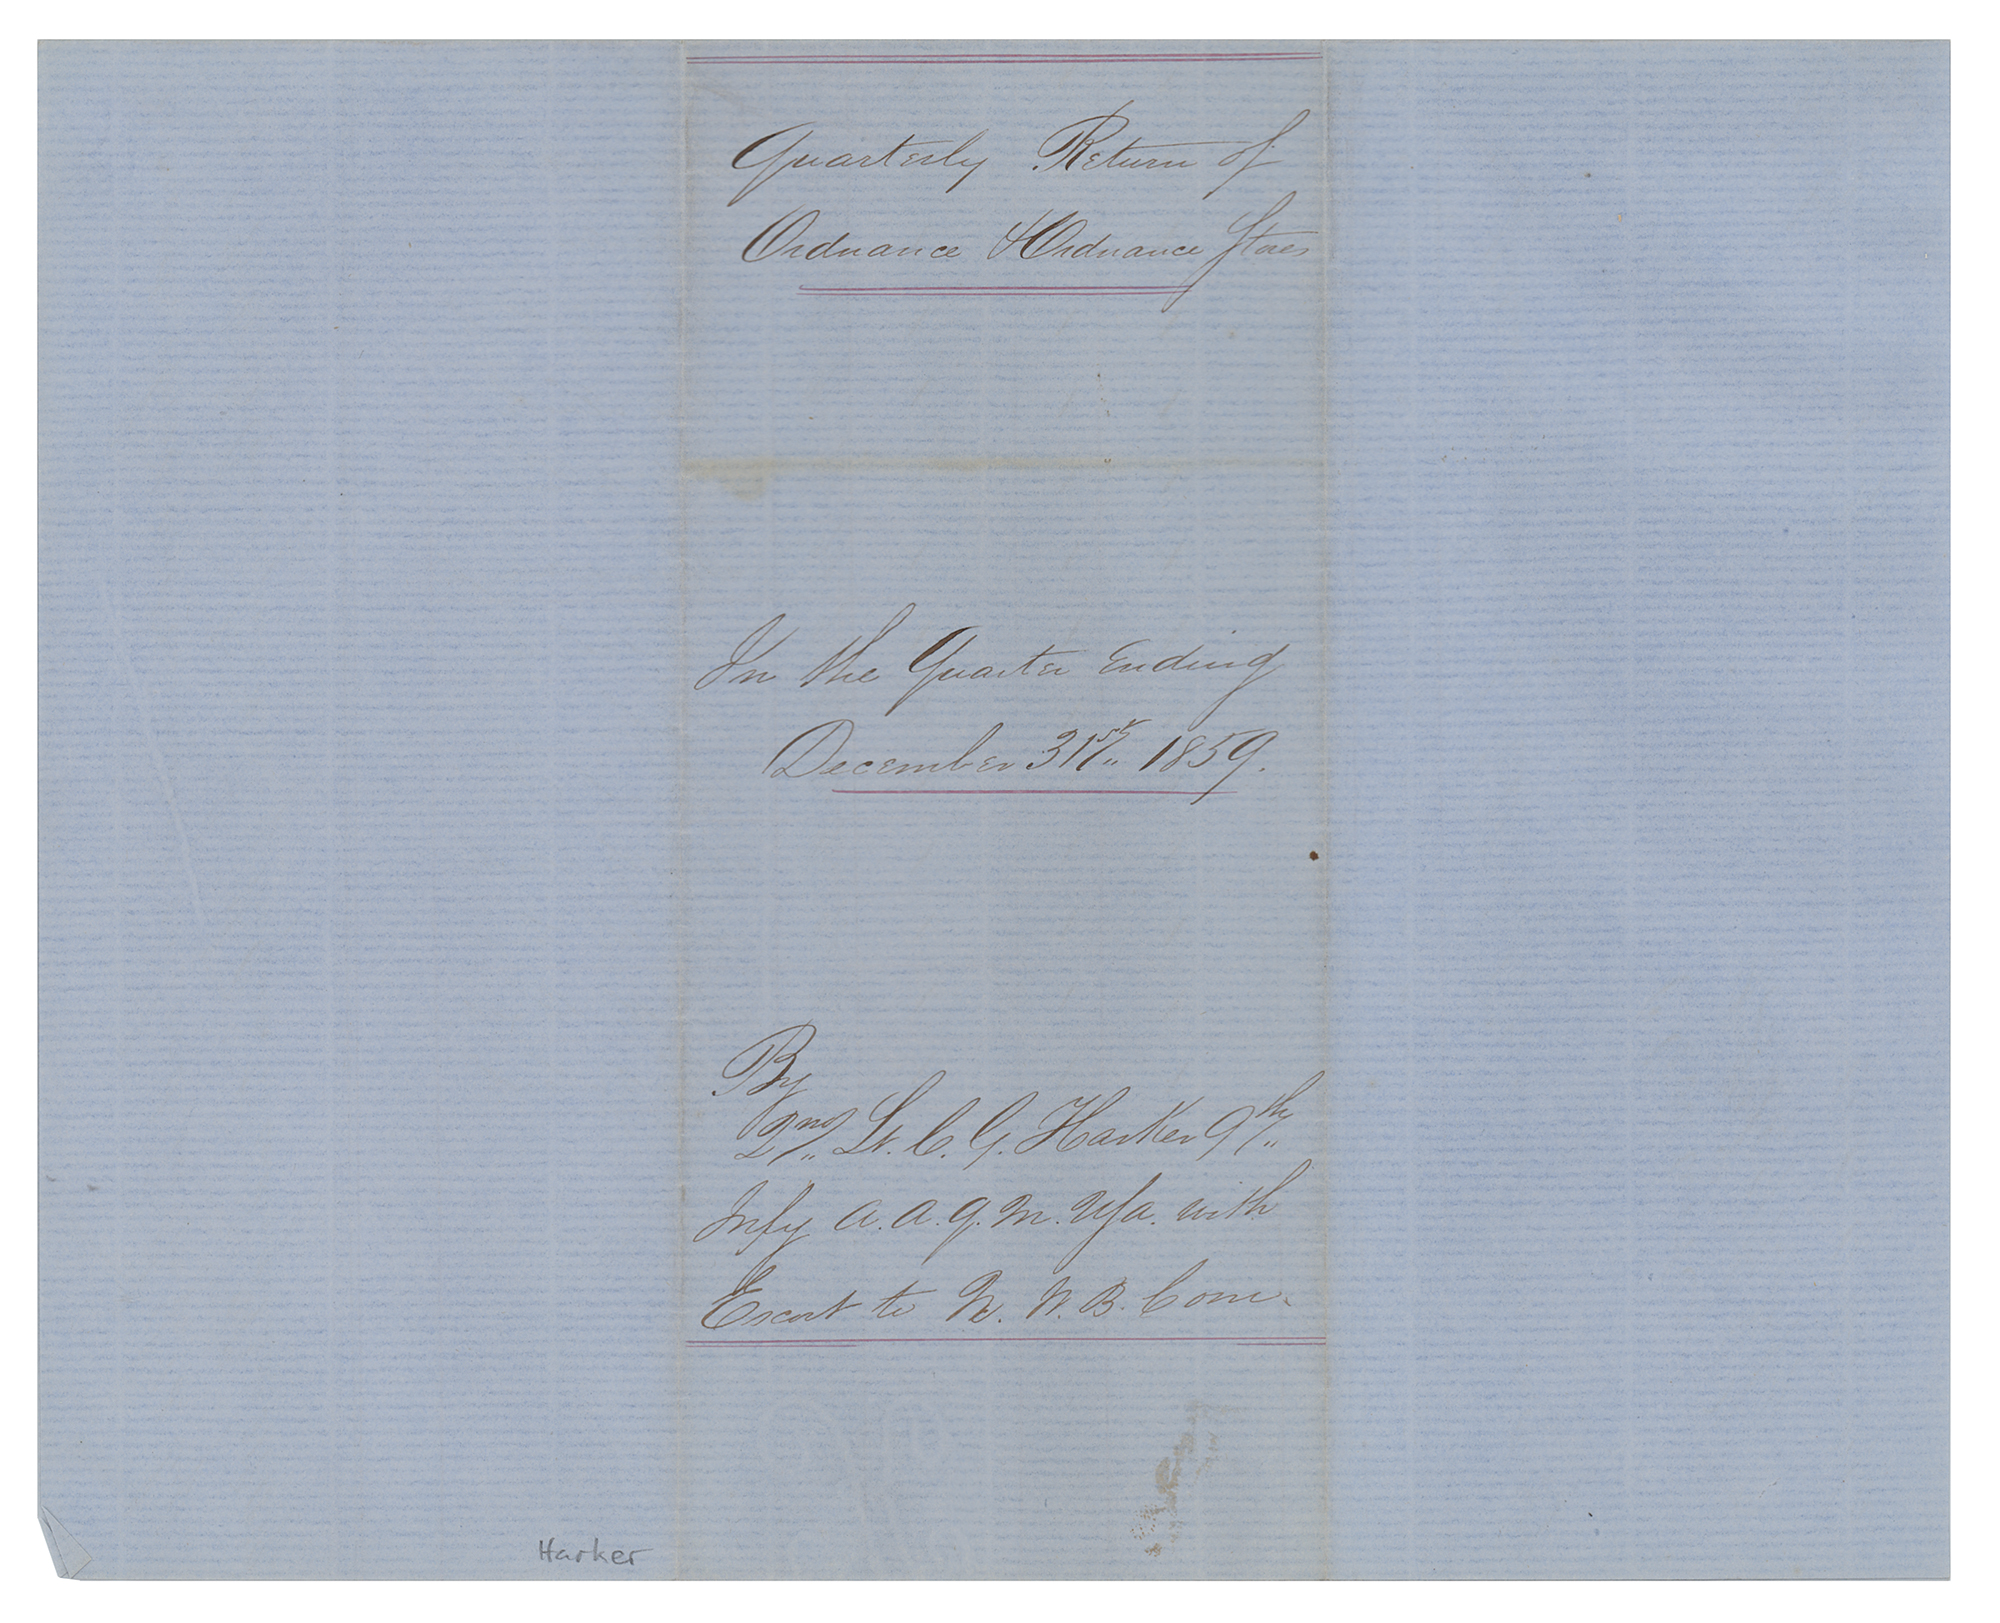 Quarterly Return of
Ordnance & Ordnance Stores
In the Quarter Ending
December 31st 1859.
By
2nd Lt. C. G. Harker 9th
Infy A. A. Q. M. USA. with
Escort to N. W. B. Com.
Harker